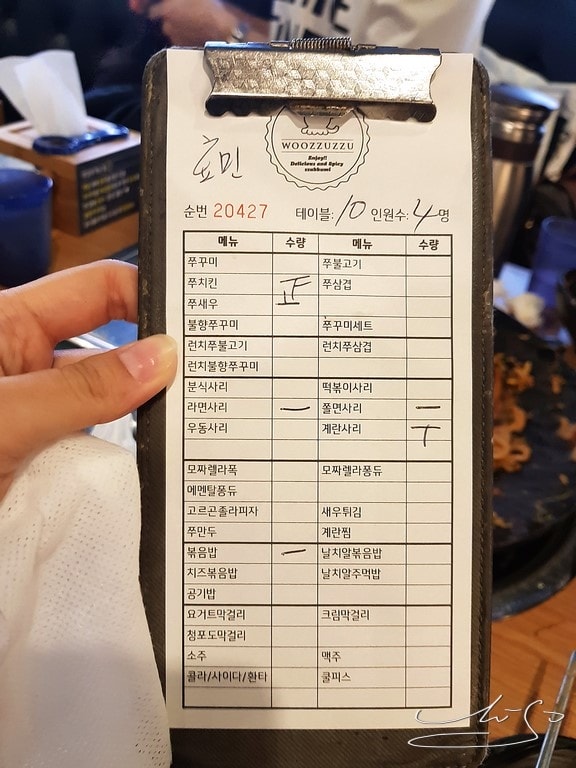 WOOZZUZZU
Enjoy!!
Delicious and Spicy
zzukkumi
효민
순번 20427 테이블: 10 인원수: 4 명
메뉴 수량 메뉴 수량
쭈꾸미 쭈불고기
쭈치킨 正 쭈삼겹
쭈새우
불향쭈꾸미 쭈꾸미세트
런치쭈불고기 런치쭈삼겹
런치불향쭈꾸미
분식사리 떡볶이사리
라면사리 一 쫄면사리 一
우동사리 계란사리 丅
모짜렐라폭 모짜렐라퐁듀
에멘탈퐁듀
고르곤졸라피자 새우튀김
쭈만두 계란찜
볶음밥 一 날치알볶음밥
치즈볶음밥 날치알주먹밥
공기밥
요거트막걸리 크림막걸리
청포도막걸리
소주 맥주
콜라/사이다/환타 쿨피스